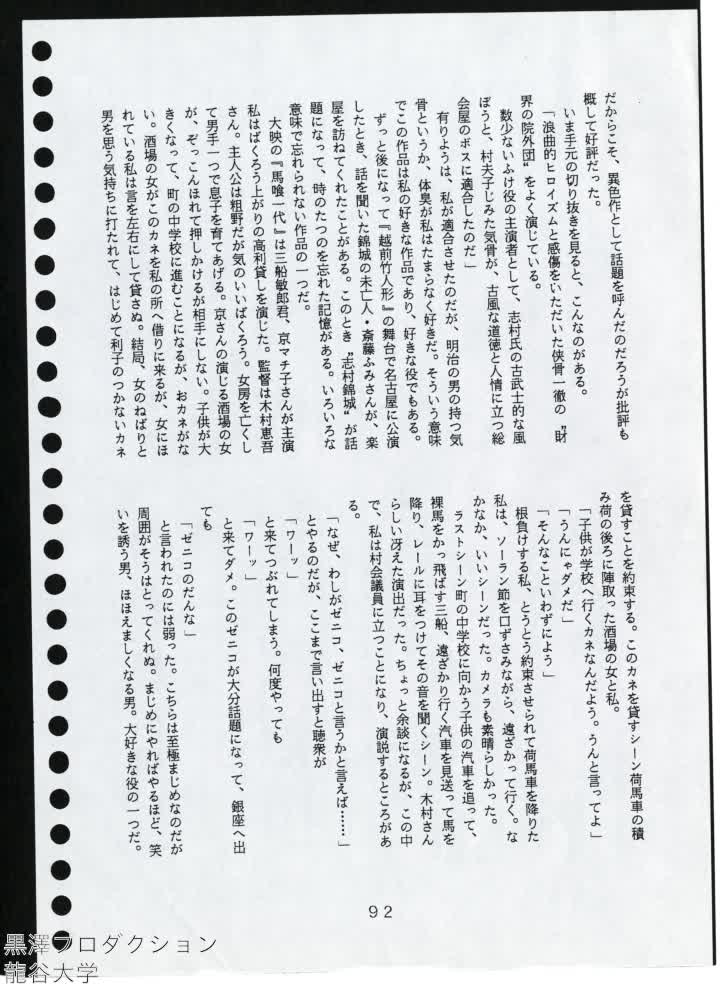 だからこそ、異色作として話題を呼んだのだろうが批評も
概して好評だった。
いま手元の切り抜きを見ると、こんなのがある。
「浪曲的ヒロイズムと感傷をいただいた侠骨一徹の〝財
界の院外団〟をよく演じている。
数少ないふけ役の主演者として、志村氏の古武士的な風
ぼうと、村夫子じみた気骨が、古風な道徳と人情に立つ総
会屋のボスに適合したのだ」
有りようは、私が適合させたのだが、明治の男の持つ気
骨というか、体臭が私はたまらなく好きだ。そういう意味
でこの作品は私の好きな作品であり、好きな役でもある。
ずっと後になって『越前竹人形』の舞台で名古屋に公演
したとき、話を聞いた錦城の未亡人・斎藤ふみさんが、楽
屋を訪ねてくれたことがある。このとき〝志村錦城〟が話
題になって、時のたつのを忘れた記憶がある。いろいろな
意味で忘れられない作品の一つだ。
大映の『馬喰一代』は三船敏郎君、京マチ子さんが主演
私はばくろう上がりの高利貸しを演じた。監督は木村恵吾
さん。主人公は粗野だが気のいいばくろう。女房を亡くし
て男手一つで息子を育てあげる。京さんの演じる酒場の女
が、ぞっこんほれて押しかけるが相手にしない。子供が大
きくなって、町の中学校に進むことになるが、おカネがな
い。酒場の女がこのカネを私の所へ借りに来るが、女にほ
れている私は言を左右にして貸さぬ。結局、女のねばりと
男を思う気持ちに打たれて、はじめて利子のつかないカネ
を貸すことを約束する。このカネを貸すシーン荷馬車の積
み荷の後ろに陣取った酒場の女と私。
「子供が学校へ行くカネなんだよう。うんと言ってよ」
「うんにゃダメだ」
「そんなこといわずによう」
根負けする私、とうとう約束させられて荷馬車を降りた
私は、ソーラン節を口ずさみながら、遠ざかって行く。な
かなか、いいシーンだった。カメラも素晴らしかった。
ラストシーン町の中学校に向かう子供の汽車を追って、
裸馬をかっ飛ばす三船、遠ざかり行く汽車を見送って馬を
降り、レールに耳をつけてその音を聞くシーン。木村さん
らしい冴えた演出だった。ちょっと余談になるが、この中
で、私は村会議員に立つことになり、演説するところがあ
る。
「なぜ、わしがゼニコ、ゼニコと言うかと言えば……」
とやるのだが、ここまで言い出すと聴衆が
「ワーッ」
と来てつぶれてしまう。何度やっても
「ワーッ」
と来てダメ。このゼニコが大分話題になって、銀座へ出
ても
「ゼニコのだんな」
と言われたのには弱った。こちらは至極まじめなのだが
周囲がそうはとってくれぬ。まじめにやればやるほど、笑
いを誘う男、ほほえましくなる男。大好きな役の一つだ。
92
黒澤プロダクション
龍谷大学